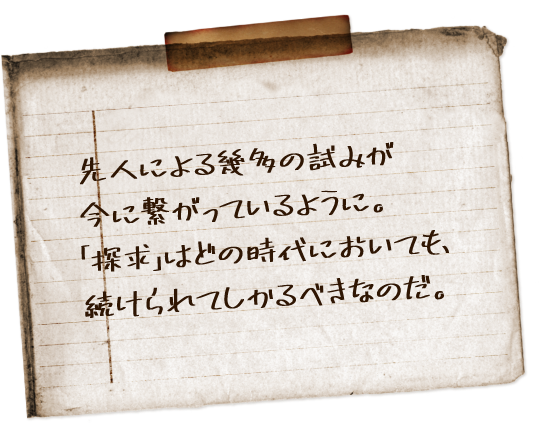 先人による幾多の試みが
今に繋がっているように。
「探求」はどの時代においても、
続けられてしかるべきなのだ。